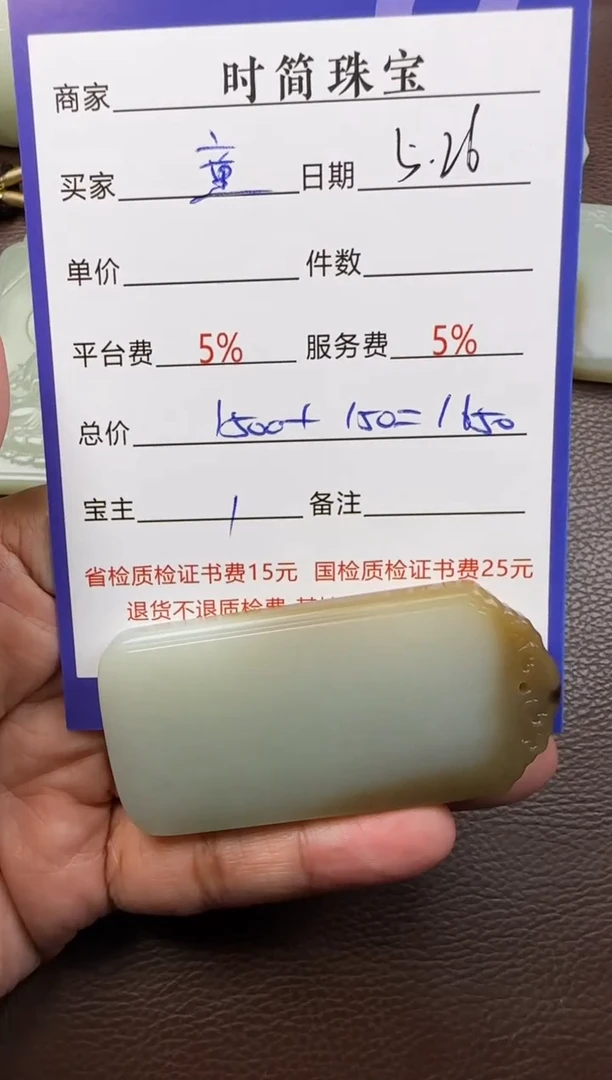 商家 时简珠宝
买家 童 日期 5.26
单价 件数
平台费 5% 服务费 5%
总价 1500+150=1650
宝主 1 备注
省检质检证书费15元 国检质检证书费25元
退货不退质检费